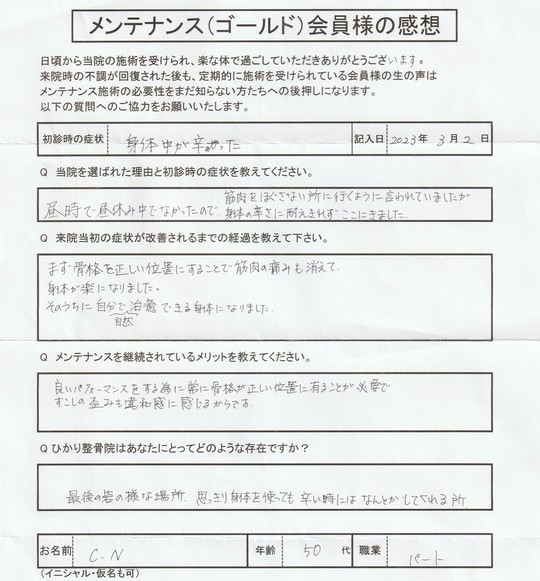 メンテナンス(ゴールド)会員様の感想
日頃から当院の施術を受けられ、楽な体で過ごしていただきありがとうございます。
来院時の不調が回復された後も、定期的に施術を受けられている会員様の生の声は
メンテナンス施術の必要性をまだ知らない方たちへの後押しになります。
以下の質問へのご協力をお願いいたします。
初診時の症状 身体中が辛かった 記入日 2023年 3月2日
Q 当院を選ばれた理由と初診時の症状を教えてください。
筋肉をほぐさない所に行くように言われていましたが
昼時で昼休み中でなかったので、身体の辛さに耐えきれず ここにきました。
Q 来院当初の症状が改善されるまでの経過を教えて下さい。
まず骨格を正しい位置にすることで筋肉の痛みも消えて、
身体が楽になりました。
そのうちに自分で治癒できる身体になりました。
自然
Q メンテナンスを継続されているメリットを教えてください。
良いパフォーマンスをする為に常に骨格が正しい位置に有ることが必要で
すこしの歪みも違和感に感じるからです。
Qひかり整骨院はあなたにとってどのような存在ですか？
最後の砦の様な場所、思っきり身体を使っても辛い時にはなんとかしてくれる所
お名前 C.N 年齢 50代 職業 パート
(イニシャル・仮名も可)